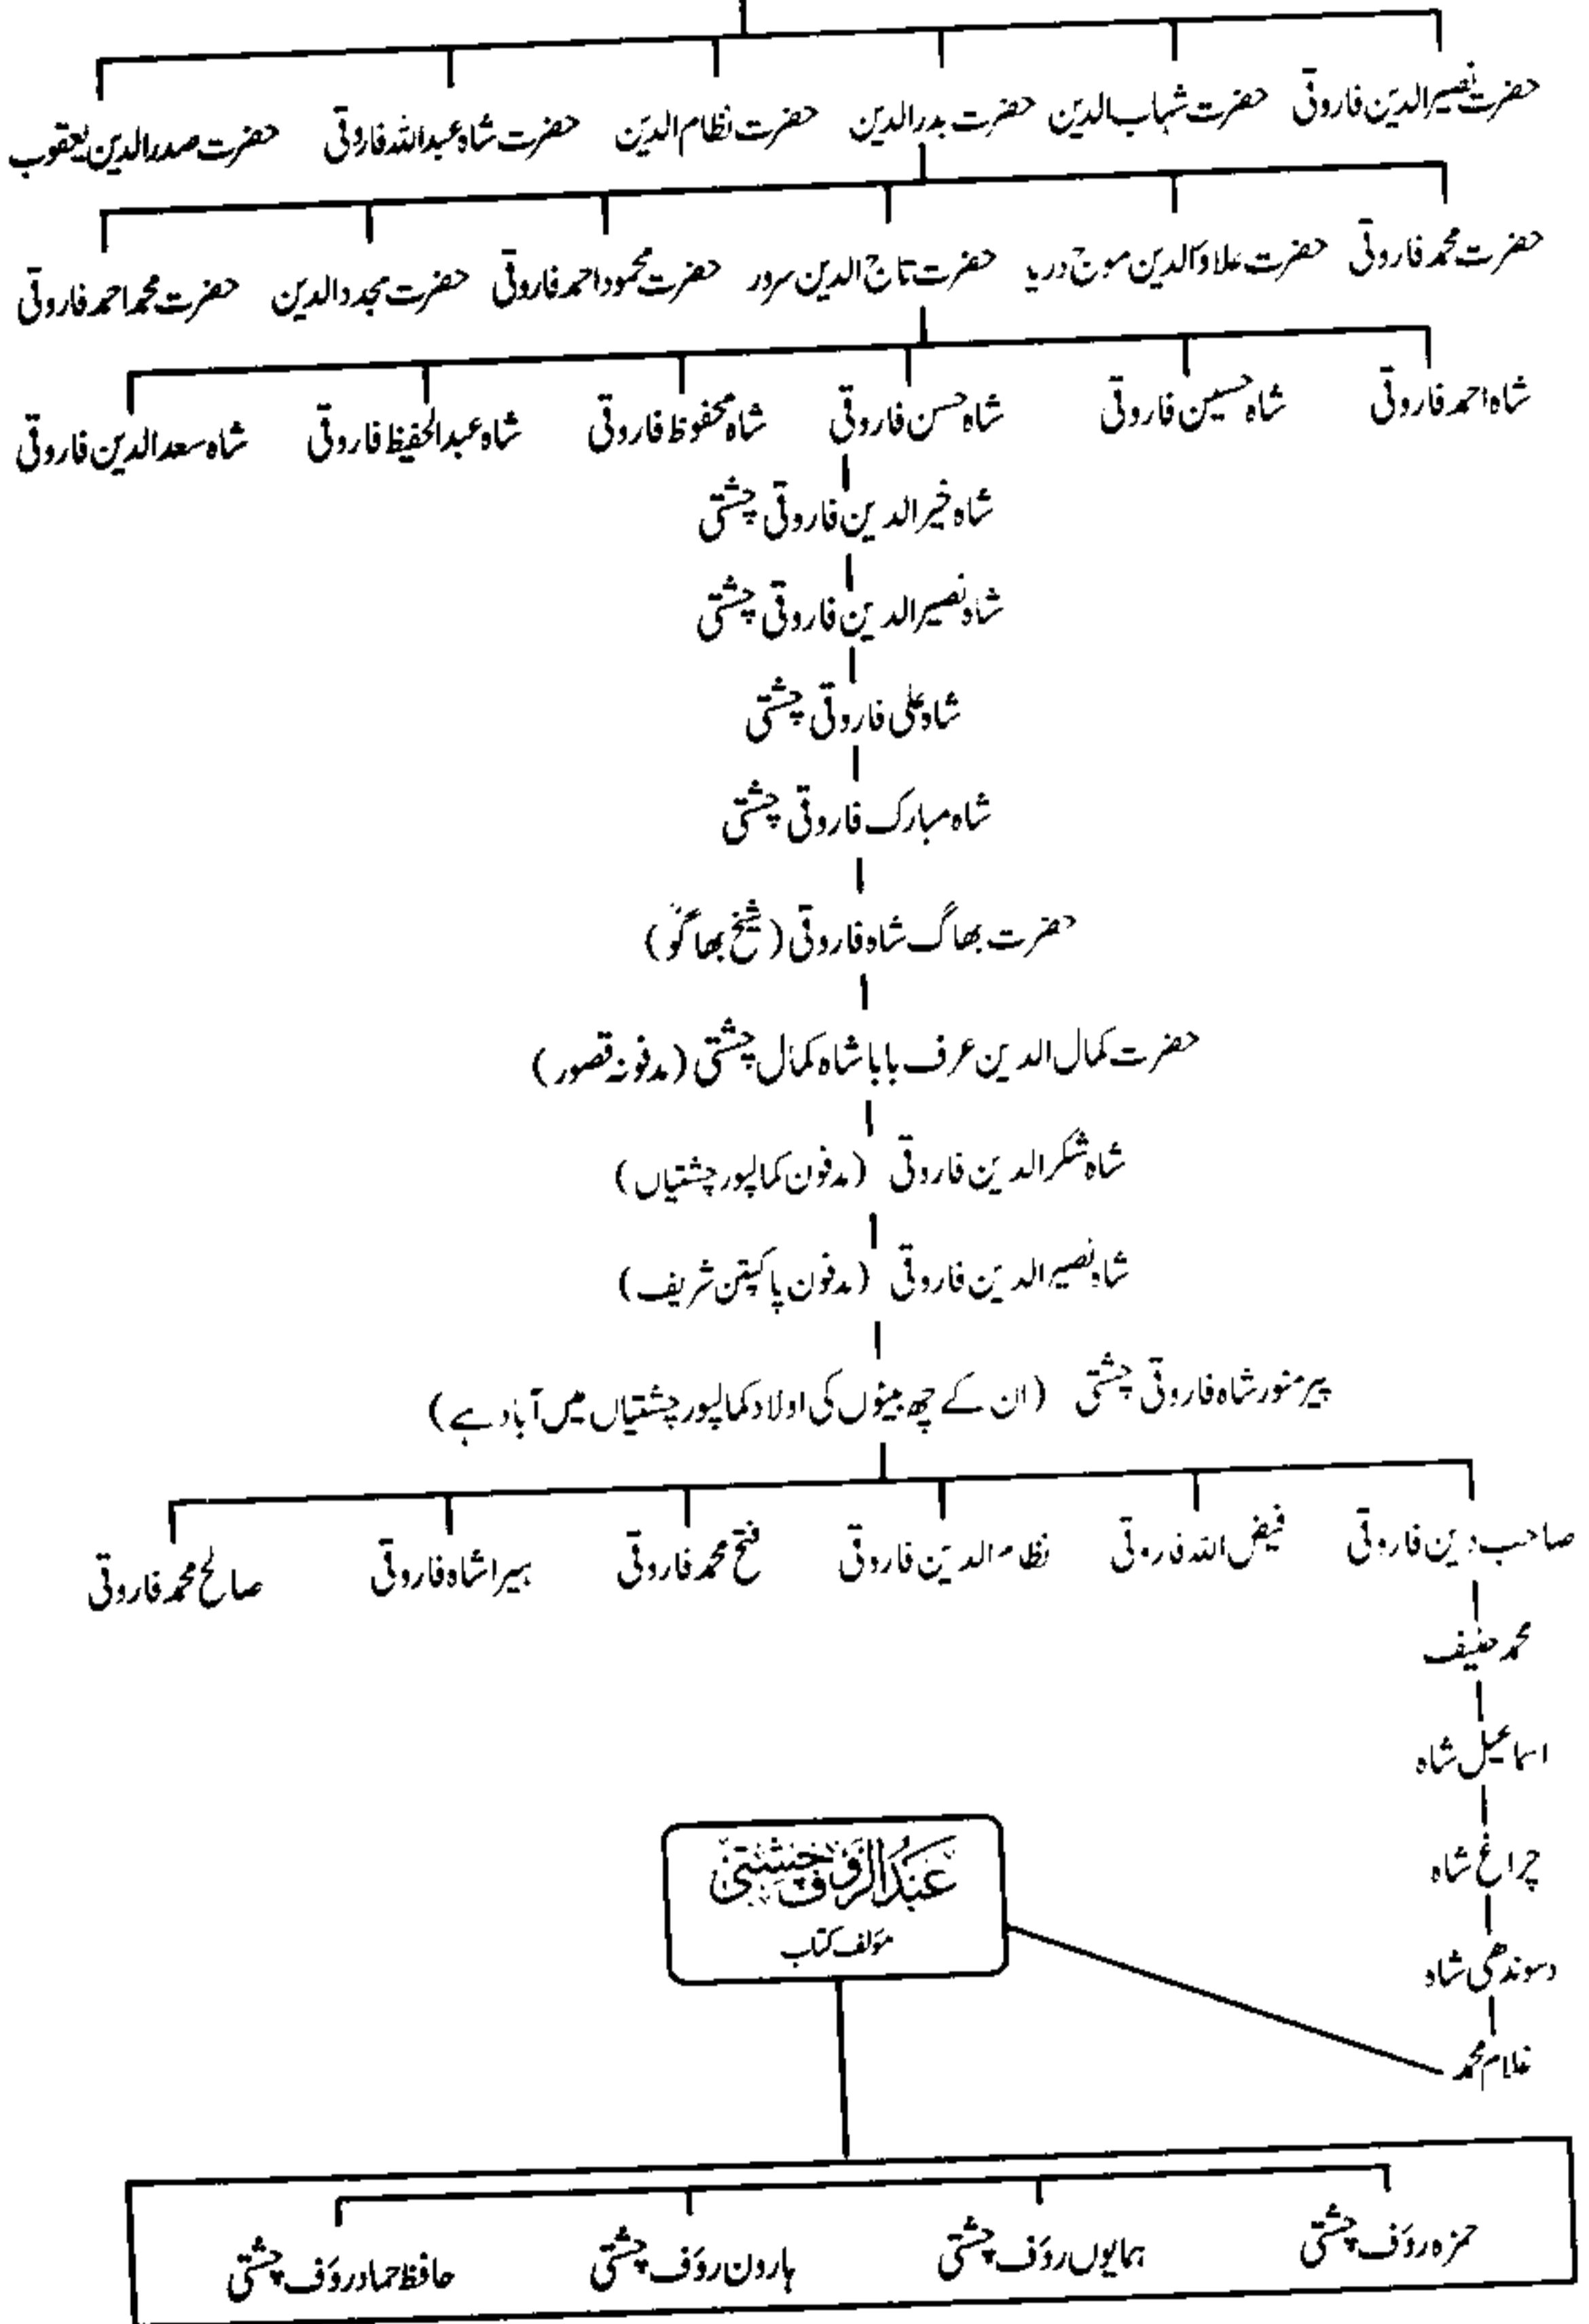 حضرت نصیرالدین فاروقی حضرت شہاب الدین حضرت بدرالدین حضرت نظام الدین حضرت شاہ عبداللہ فاروقی حضرت صدرالدین یعقوب
حضرت محمد فاروقی حضرت علاؤالدین موج دریا حضرت تاج الدین سرور حضرت محمود احمد فاروقی حضرت مجدد الدین حضرت محمد احمد فاروقی
شاہ احمد فاروقی شاہ حسین فاروقی شاہ حسن فاروقی شاہ محفوظ فاروقی شاہ عبدالحفیظ فاروقی شاہ سعد الدین فاروقی
شاہ خیر الدین فاروقی چشتی
شاہ نصیر الدین فاروقی چشتی
شاہ علی فاروقی چشتی
شاہ مبارک فاروقی چشتی
حضرت بھاگ شاہ فاروقی (شیخ بھاگو)
حضرت کمال الدین عرف بابا شاہ کمال چشتی (مدفونہ قصور)
شاہ شکر الدین فاروقی (مدفون کمالپور چشتیاں)
شاہ نصیر الدین فاروقی (مدفون پاکپتن شریف)
پیر منور شاہ فاروقی چشتی (ان کے چھ بیٹوں کی اولاد کمالپور چشتیاں میں آباد ہے)
صاحب دین فاروقی فیض اللہ فاروقی نظام الدین فاروقی فتح محمد فاروقی ہیرا شاہ فاروقی صالح محمد فاروقی
محمد حنیف
اسماعیل شاہ
چراغ شاہ
دسوندھی شاہ
غلام محمد
عبدالرؤف چشتی
مؤلف کتاب
حمزہ رؤف چشتی ہمایوں رؤف چشتی ہارون رؤف چشتی حافظ حماد رؤف چشتی